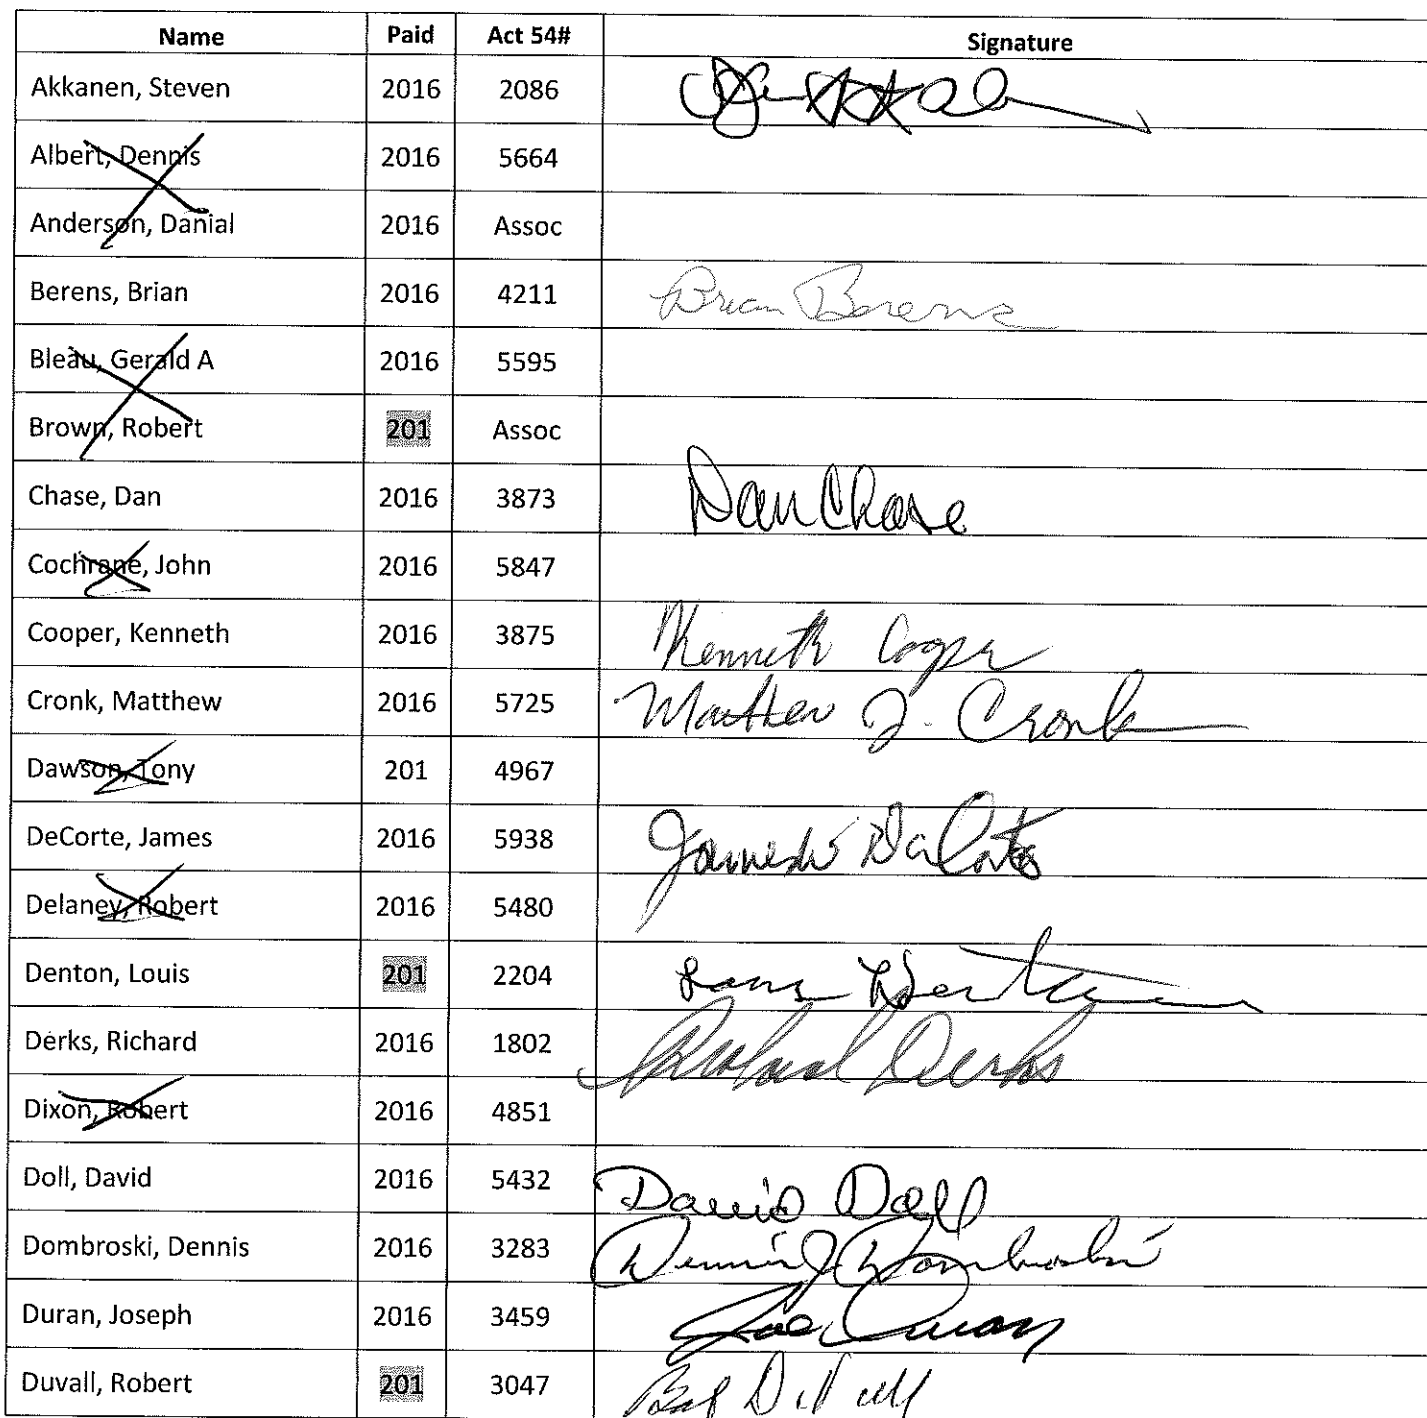 Name Paid Act 54# Signature
Akkanen, Steven 2016 2086
Albert, Dennis 2016 5664
Anderson, Danial 2016 Assoc
Berens, Brian 2016 4211 Brian Berens
Bleau, Gerald A 2016 5595
Brown, Robert 201 Assoc
Chase, Dan 2016 3873 Dan Chase
Cochrane, John 2016 5847
Cooper, Kenneth 2016 3875 Kenneth Cooper
Cronk, Matthew 2016 5725 Matthew J. Cronk
Dawson, Tony 201 4967
DeCorte, James 2016 5938 James DeCorte
Delaney, Robert 2016 5480
Denton, Louis 201 2204 Louis Denton
Derks, Richard 2016 1802 Richard Derks
Dixon, Robert 2016 4851
Doll, David 2016 5432 David Doll
Dombroski, Dennis 2016 3283 Dennis J Dombroski
Duran, Joseph 2016 3459 Joe Duran
Duvall, Robert 201 3047 Bob Duvall